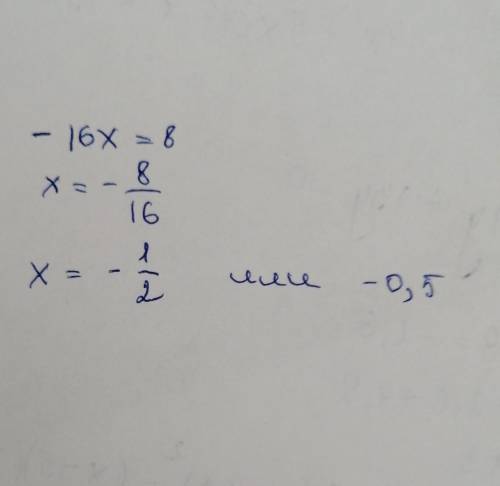 - 16x = 8
x = - 8/16
x = - 1/2 или -0,5